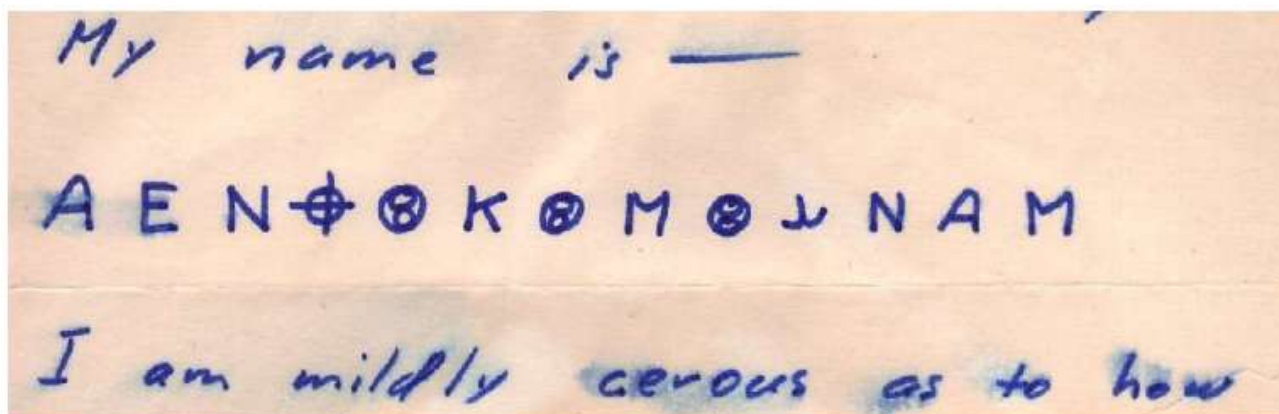 My name is —
A E N ⌖ ⊗ K ⊗ M ⊗ ⅄ N A M
I am mildly cerous as to how